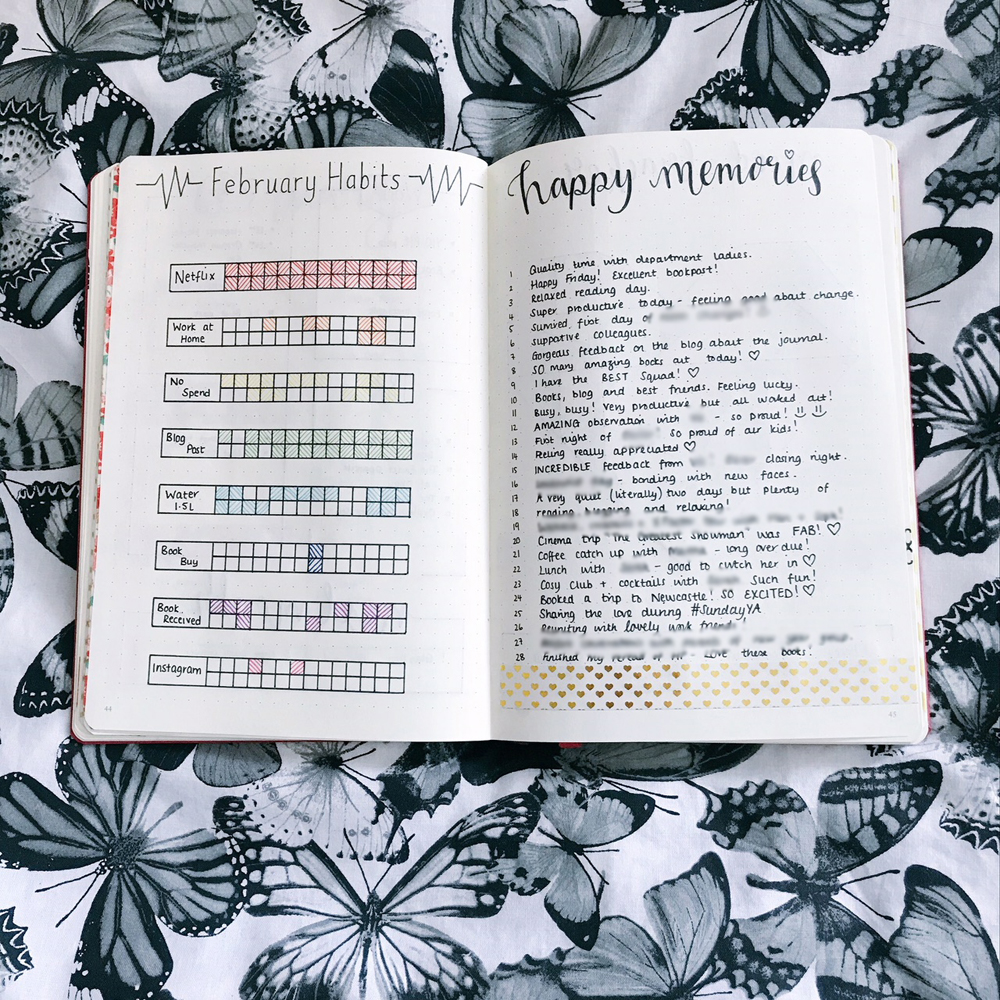 February Habits
Netflix
Work at
Home
No
Spend
Blog
Post
Water
1.5L
Book
Buy
Book
Received
Instagram
44
happy memories
1 Quality time with department ladies.
2 Happy Friday! Excellent bookpost!
3 Relaxed reading day.
4 Super productive today - feeling good about change.
5 Survived first day of
6 Supportive colleagues.
7 Gorgeous feedback on the blog about the journal.
8 SO many amazing books out today! ♡
9 I have the BEST Squad! ♡
10 Books, blog and best friends. Feeling lucky.
11 Busy, busy! Very productive but all worked out!
12 AMAZING observation with - so proud!
13 First night of so proud of our kids!
14 Feeling really appreciated ♡
15 INCREDIBLE feedback from closing night.
16 - bonding with new faces.
17 A very quiet (literally) two days but plenty of
18 reading blogging and relaxing!
19
20 Cinema trip "The Greatest Showman" was FAB! ♡
21 Coffee catch up with - long over due!
22 Lunch with - good to catch her in ♡
23 Cosy Club + cocktails with Such fun!
24 Booked a trip to Newcastle! SO EXCITED! ♡
25 Sharing the love during #SundayYA
26 Reuniting with lovely work friend!
27
28 Finished my reread of HP - LOVE these books!
45